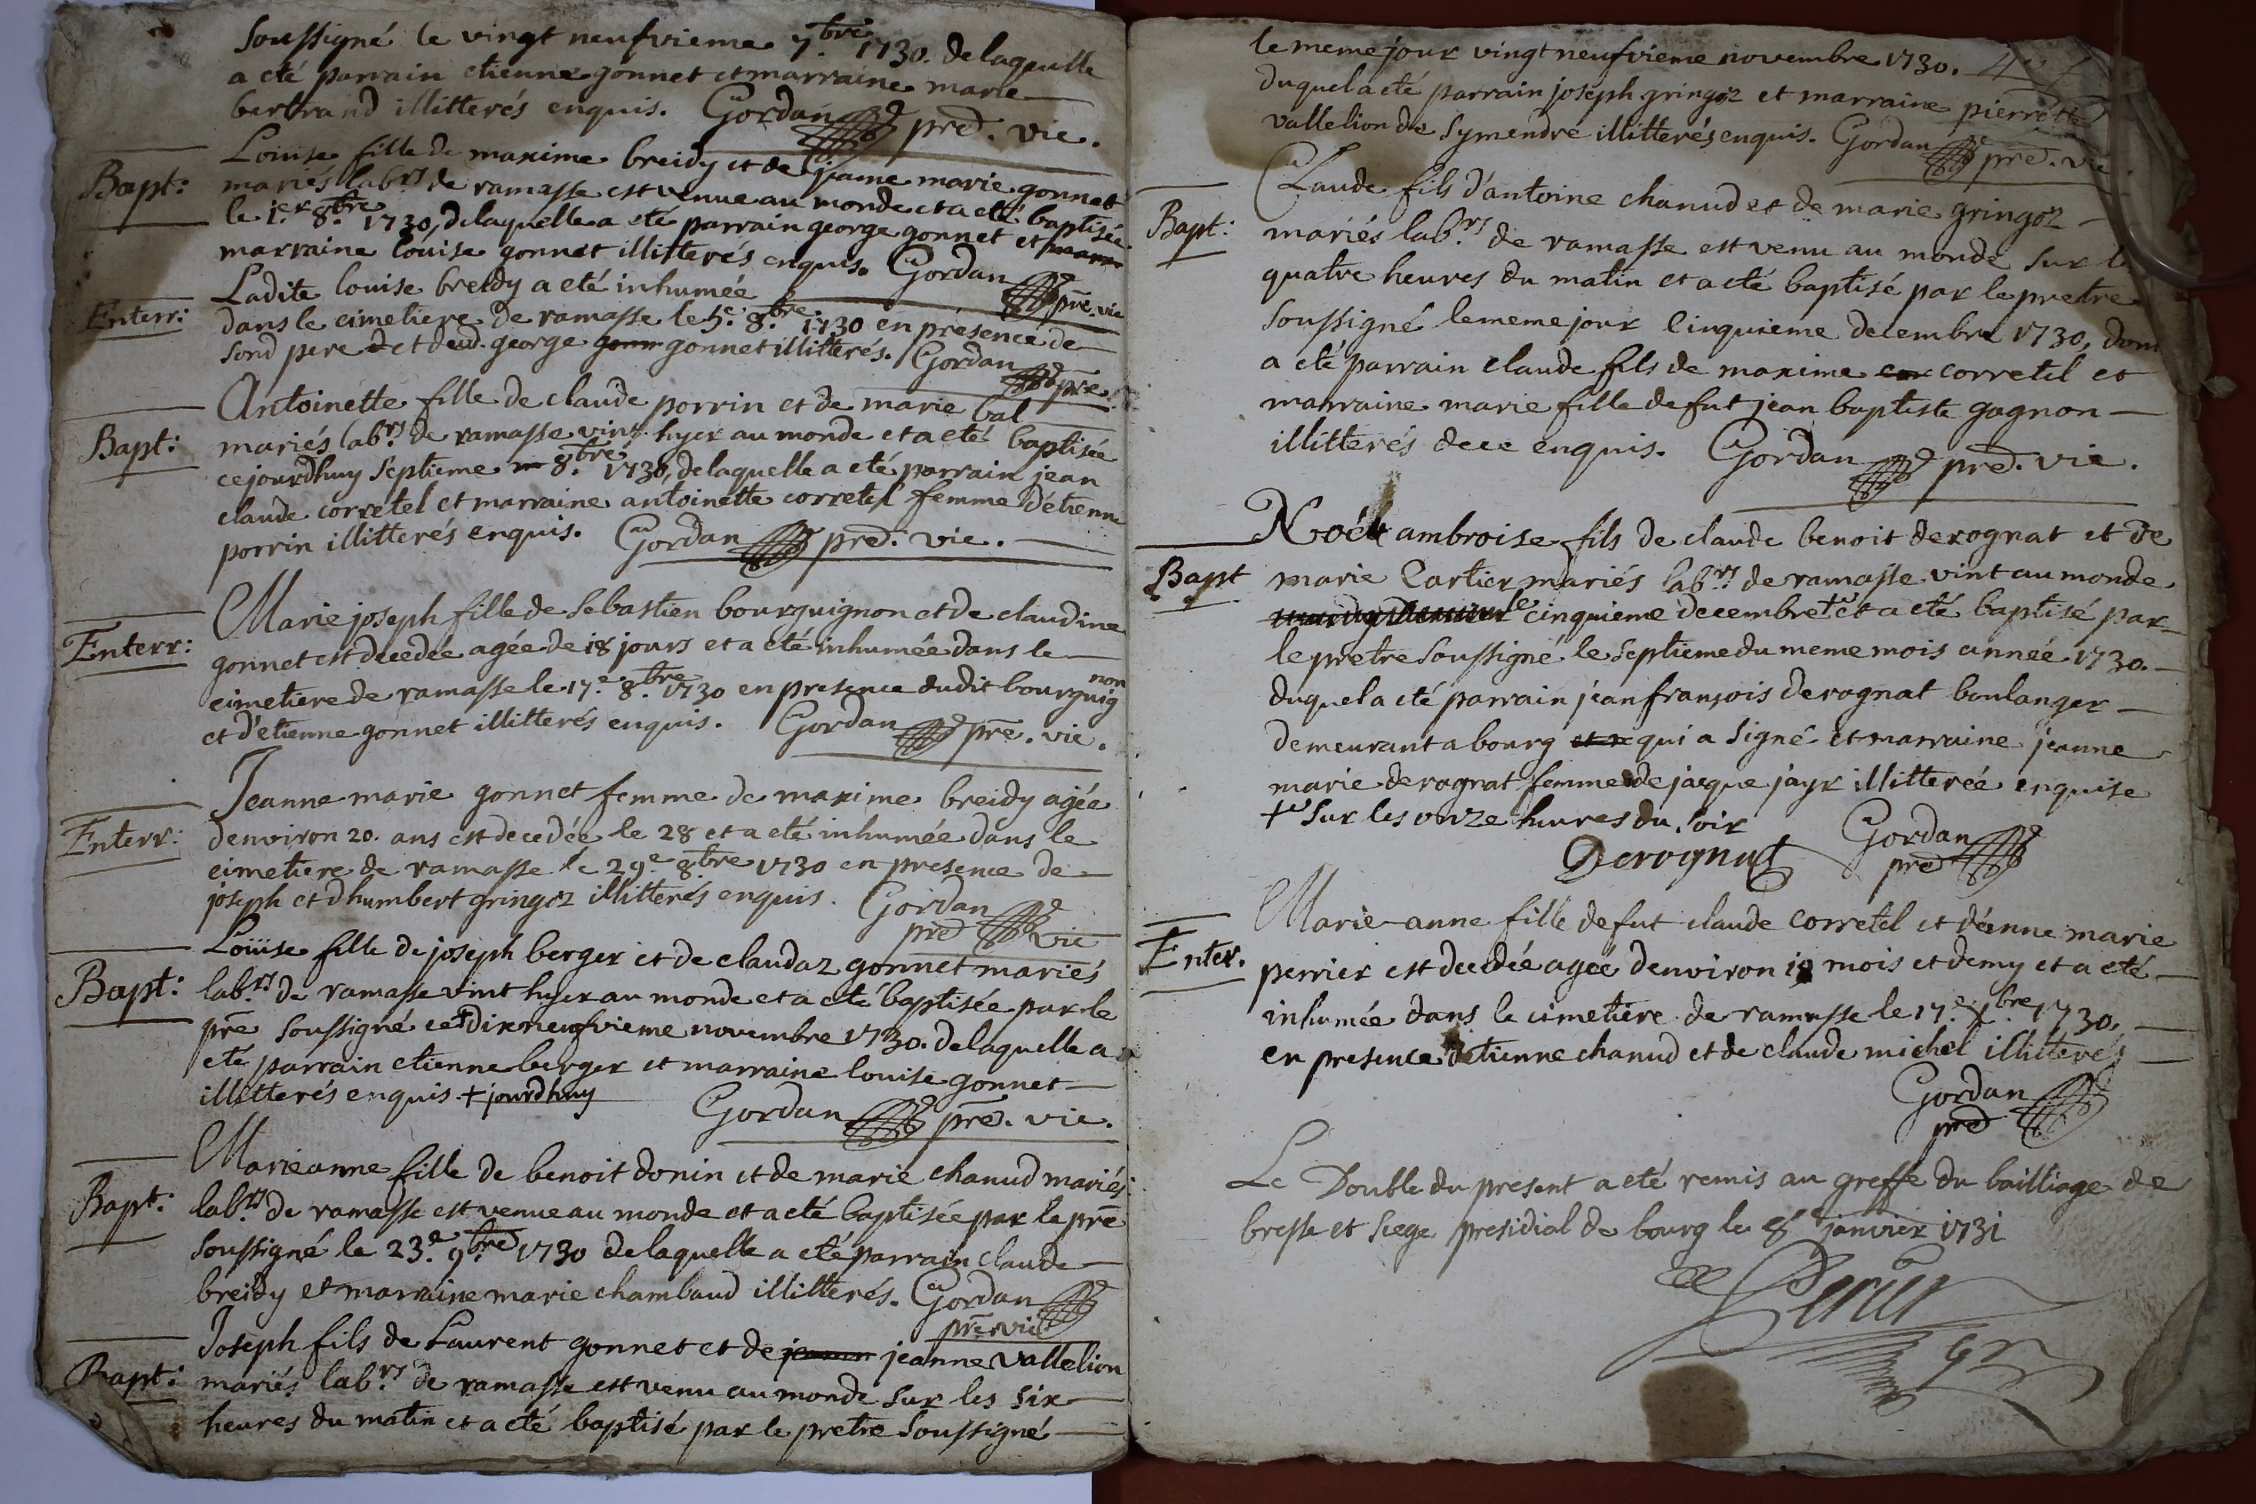 soussigné le vingt neufvieme 7.bre 1730. delaquelle
a eté parrain etienne gonnet et marraine marie
bertrand illitterés enquis. Gordan pre. vic.
Bapt: Louise fille de maxime breidy et de jeanne marie gonnet
mariés lab.rs de ramasse est venue au monde et a eté baptisée
le 1.er 8.bre 1730, delaquelle a eté parrain george gonnet et
marraine louise gonnet illitterés enquis. Gordan pre. vic
Enterr: Ladite louise breidy a eté inhumée
dans le cimetiere de ramasse le 5.e 8.bre 1730 en présence de
sond pere et dud. george gonnet illitterés. Gordan pre.
Bapt: Antoinette fille de claude porrin et de marie bal
mariés lab.rs de ramasse vint hyer au monde et a eté baptisée
cejourdhuy septieme 8.bre 1730, delaquelle a eté parrain jean
claude corretel et marraine antoinette corretel femme d'étienne
porrin illitterés enquis. Gordan pre. vic.
Enterr: Marie joseph fille de Sebastien bourguignon et de claudine
gonnet est decedée agée de 18 jours et a eté inhumée dans le
cimetiere de ramasse le 17.e 8.bre 1730 en presence dudit bourguignon
et d'etienne gonnet illitterés enquis. Gordan pre. vic.
Enterr: Jeanne marie gonnet femme de maxime breidy agée
denviron 20. ans est decedée le 28 et a eté inhumée dans le
cimetiere de ramasse le 29.e 8.bre 1730 en presence de
joseph et dhumbert gringoz illitterés enquis. Gordan
pre vic
Bapt: Loüise fille de joseph berger et de claudaz gonnet mariés
lab.rs de ramasse vint hyer au monde et a eté baptisée par le
pre soussigné ce+ dix neufvieme novembre 1730. delaquelle a
eté parrain etienne berger et marraine louise gonnet
illitterés enquis + jourdhuy Gordan pre. vic.
Bapt: Marieanne fille de benoit donin et de marie chanud mariés
lab.rs de ramasse est venue au monde et a eté baptisée par le pre
soussigné le 23.e 9.bre 1730 delaquelle a eté parrain claude
breidy et marraine marie chambaud illitterés. Gordan
pre vic
Bapt: Joseph fils de Laurent gonnet et de jeanne vallelion
mariés lab.rs de ramasse est venu au monde sur les six
heures du matin et a eté baptisé par le pretre soussigné
le meme jour vingt neufvieme novembre 1730.
duquel a eté parrain joseph gringoz et marraine pierrette
vallelion de Symendre illitterés enquis. Gordan pre. vic
Bapt: Claude fils d'antoine chanud et de marie gringoz
mariés lab.rs de ramasse est venu au monde sur les
quatre heures du matin et a eté baptisé par le pretre
soussigné le meme jour cinquieme decembre 1730, dont
a eté parrain claude fils de maxime corretel et
marraine marie fille de fut jean baptiste gagnon
illitterés dece enquis. Gordan pre. vic.
Bapt Noël ambroise fils de claude benoit derognat et de
marie Cartier mariés lab.rs de ramasse vint au monde
le cinquieme decembre + et a eté baptisé par
le pretre soussigné le septieme du meme mois année 1730.
duquel a eté parrain jean françois derognat boulanger
demeurant a bourg qui a signé et marraine jeanne
marie derognat femme de jacque jayr illitterée enquise
+ sur les onze heures du soir
Derognat Gordan
pre
Enter. Marie anne fille de fut claude corretel et d'anne marie
perrier est decedée agée denviron mois et demy et a eté
inhumée dans le cimetiere de ramasse le 17.e Xbre 1730.
en presence d'etienne chanud et de claude michel illitterés
Gordan
pre
Le Double du present a eté remis au greffe du bailliage de
bresse et siege presidial de bourg le 8 janvier 1731